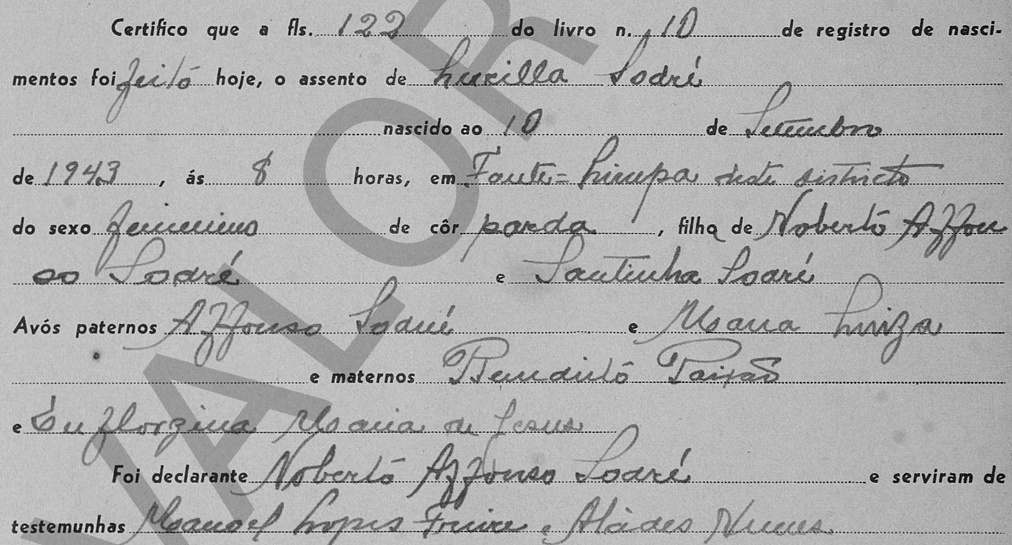 Certifico que a fls. 122 do livro n. 10 de registro de nasci-
mentos foi feitó hoje, o assento de Lucilla Sodré
nascido ao 10 de Setembro
de 1943, ás 8 horas, em Fonte = Limpa deste districto
do sexo feminino de côr parda, filha de Nobertó Affon
so Sodré e Santinha Sodré
Avós paternos Affonso Sodré e Maria Luiza
e maternos Benedictó Paixão
e Euflorzina Maria de Jesus
Foi declarante Nobertó Affonso Sodré e serviram de
testemunhas Manoel Lopes Freire e Alcides Nunes
VALOR